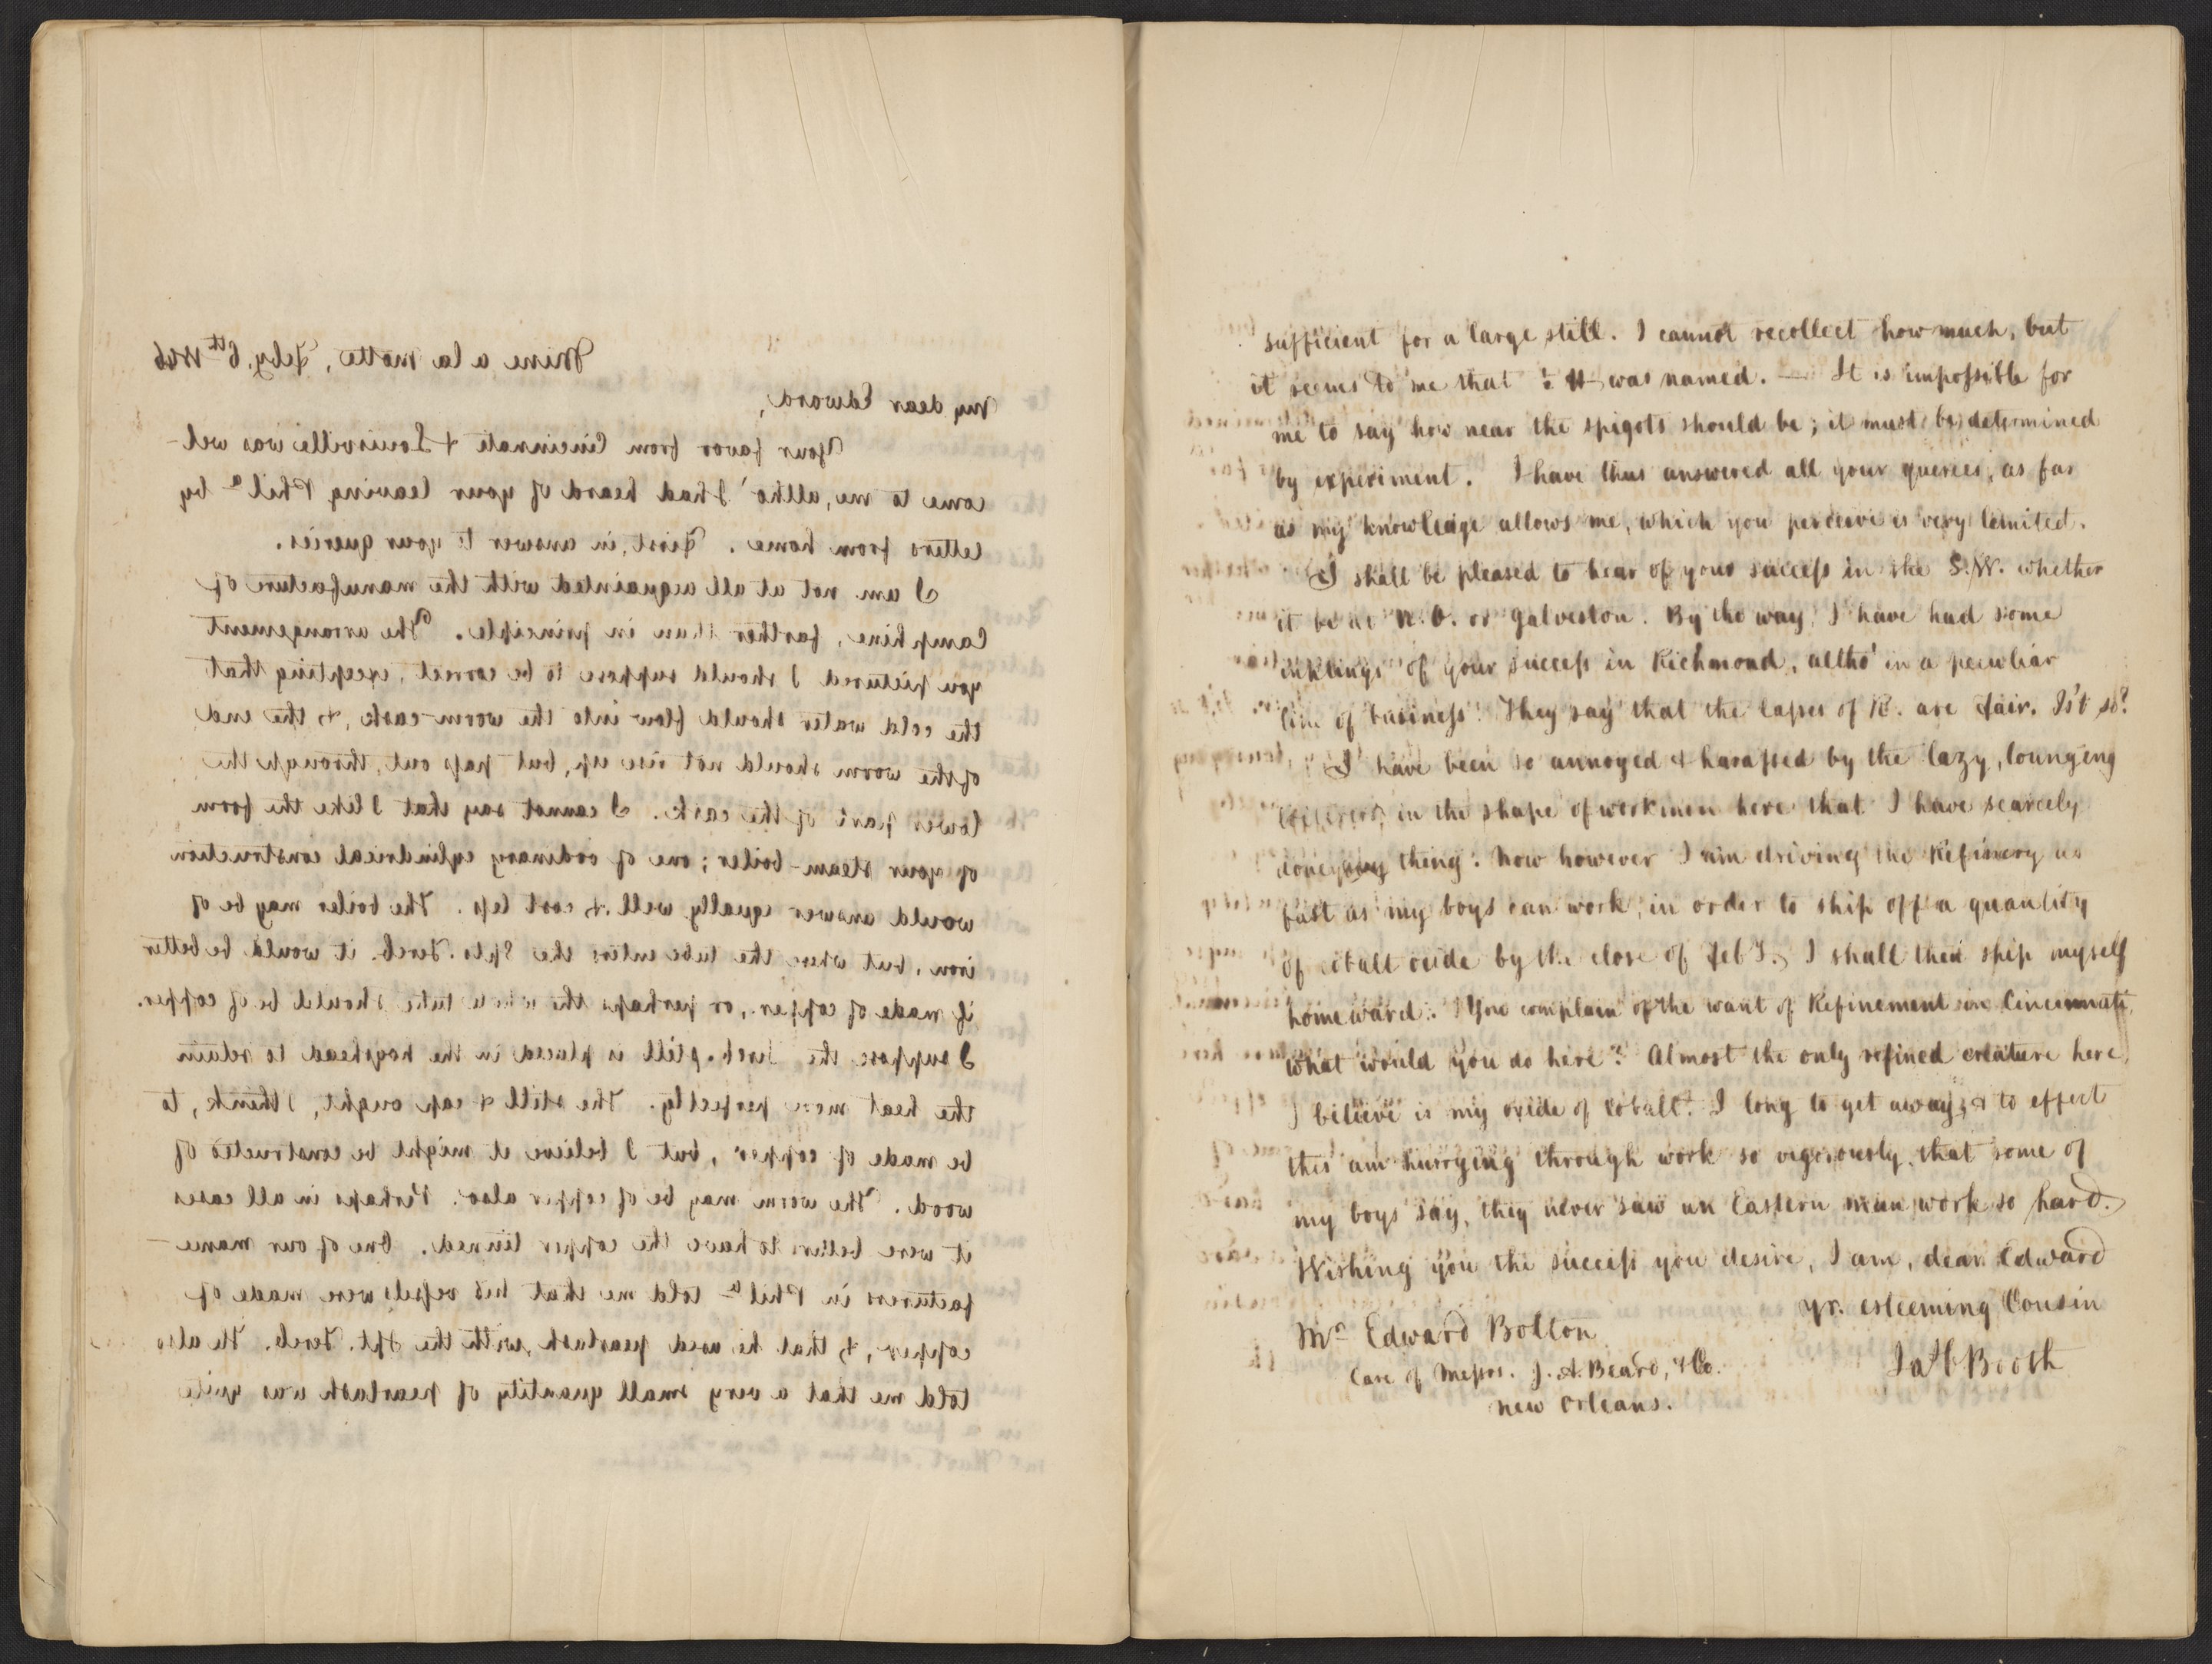 Mine a la Motte, Feby. 6th 1846
My dear Edward,
Your favor from Cincinnati & Louisville was wel-
come to me, altho' I had heard of your leaving Phila by
letters from home. First, in answer to your queries.
I am not at all acquainted with the manufacture of
Camphine, farther than in principle. The arrangement
you pictured I should suppose to be correct, excepting that
the cold water should flow into the worm-cask, & the end
of the worm should not rise up, but pass out, through the
lower part of the cask. I cannot say that I like the form
of your steam-boiler; one of ordinary cylindrical construction
would answer equally well & cost less. The boiler may be of
iron, but where the tube enters the Spts. Tereb. it would be better
if made of copper, or perhaps the whole tube should be of copper.
I suppose the Tereb. still is placed in the hogshead to retain
the heat more perfectly. The still & cap ought, I think, to
be made of copper, but I believe it might be constructed of
wood. The worm may be of copper also. Perhaps in all cases
it were better to have the copper tinned. One of our manu-
facturers in Phila told me that his vessels were made of
copper, & that he used pearlash with the Spt. Tereb. He also
told me that a very small quantity of pearlash was quite
sufficient for a large still. I cannot recollect how much, but
it seems to me that was named. — It is impossible for
me to say how near the spigots should be; it must be determined
by experiment. I have thus answered all your queries, as far
as my knowledge allows me, which you perceive is very limited.
I shall be pleased to hear of your success in the S.W. whether
it be at N.O. or Galveston. By the way, I have had some
inklings of your success in Richmond, altho' in a peculiar
line of business. They say that the lasses of R. are fair. Is't so?
I have been so annoyed & harassed by the lazy, lounging
loiterers, in the shape of workmen here that I have scarcely
done any thing. Now however I am driving the Refinery as
fast as my boys can work, in order to ship off a quantity
of cobalt oxide by the close of Feby. I shall then ship myself
homeward. You complain of the want of Refinement in Cincinnati,
what would you do here? Almost the only refined creature here,
I believe is my oxide of cobalt. I long to get away, & to effect
this am hurrying through work so vigorously, that some of
my boys say, they never saw an Eastern man work so hard.
Wishing you the success you desire, I am, dear Edward
yr. esteeming Cousin
Mr Edward Bolton
Jas C Booth
Care of Messrs. J. A. Beard, & Co.
New Orleans.